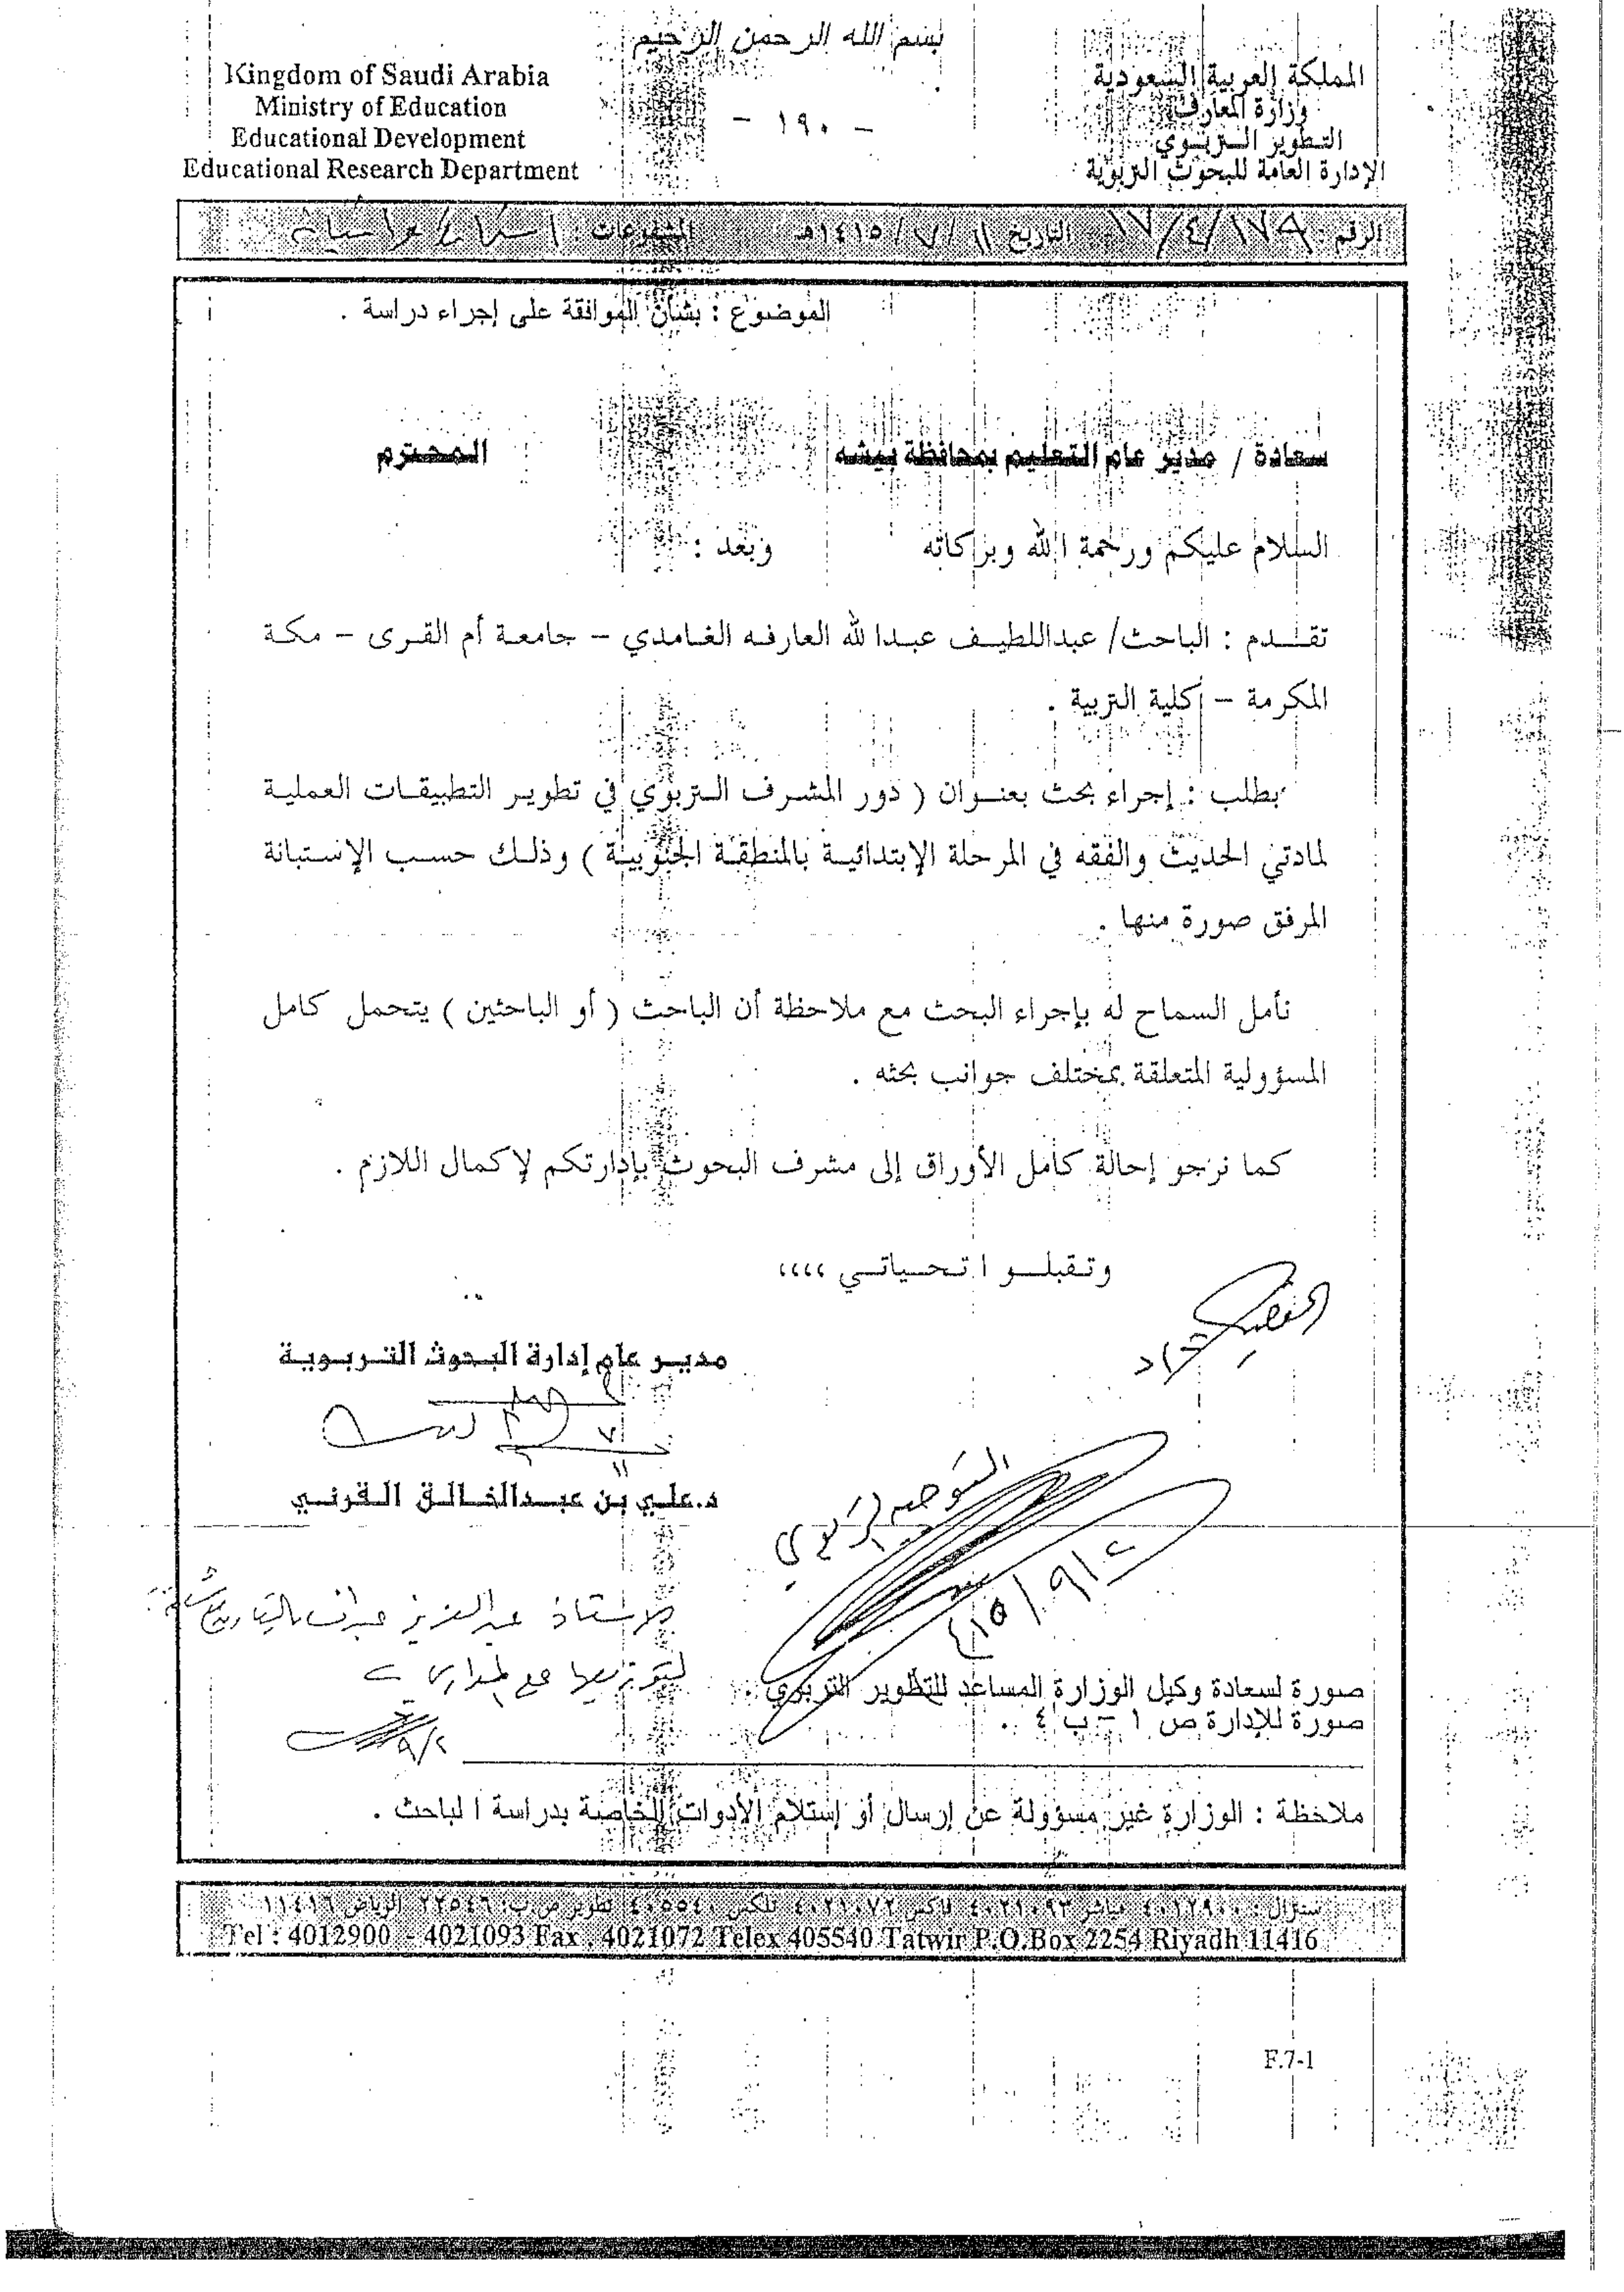 بسم الله الرحمن الرحيم
المملكة العربية السعودية
وزارة المعارف
التطوير التربوي
الإدارة العامة للبحوث التربوية
Kingdom of Saudi Arabia
Ministry of Education
Educational Development
Educational Research Department
- ١٩٠ -
الرقم : ١٧/٤/١٧٩ التاريخ ١١/٧/١٤١٥هـ المشفوعات :
الموضوع : بشأن الموافقة على إجراء دراسة .
سعادة / مدير عام التعليم بمحافظة بيشه المحترم
السلام عليكم ورحمة الله وبركاته وبعد :
تقدم : الباحث/ عبداللطيف عبدالله العارفه الغامدي – جامعة أم القرى – مكة
المكرمة – كلية التربية .
بطلب : إجراء بحث بعنوان ( دور المشرف التربوي في تطوير التطبيقات العملية
لمادتي الحديث والفقه في المرحلة الإبتدائية بالمنطقة الجنوبية ) وذلك حسب الإستبانة
المرفق صورة منها .
نأمل السماح له بإجراء البحث مع ملاحظة أن الباحث ( أو الباحثين ) يتحمل كامل
المسؤولية المتعلقة بمختلف جوانب بحثه .
كما نرجو إحالة كامل الأوراق إلى مشرف البحوث بإدارتكم لإكمال اللازم .
وتقبلوا تحياتي ،،،،
مدير عام إدارة البحوث التربوية
د.علي بن عبدالخالق القرني
التوجيه التربوي
الاستاذ عبدالعزيز
لتوزيعها على المدارس
صورة لسعادة وكيل الوزارة المساعد للتطوير التربوي .
صورة للإدارة ص ١ – ب ٤ .
ملاحظة : الوزارة غير مسؤولة عن إرسال أو إستلام الأدوات الخاصة بدراسة الباحث .
سنترال : ٤٠١٢٩٠٠ مباشر ٤٠٢١٠٩٣ فاكس ٤٠٢١٠٧٢ تلكس ٤٠٥٥٤٠ تطوير ص.ب: ٢٢٥٤٦ الرياض ١١٤١٦
Tel : 4012900 - 4021093 Fax . 4021072 Telex 405540 Tatwir P.O.Box 2254 Riyadh 11416
F.7-1